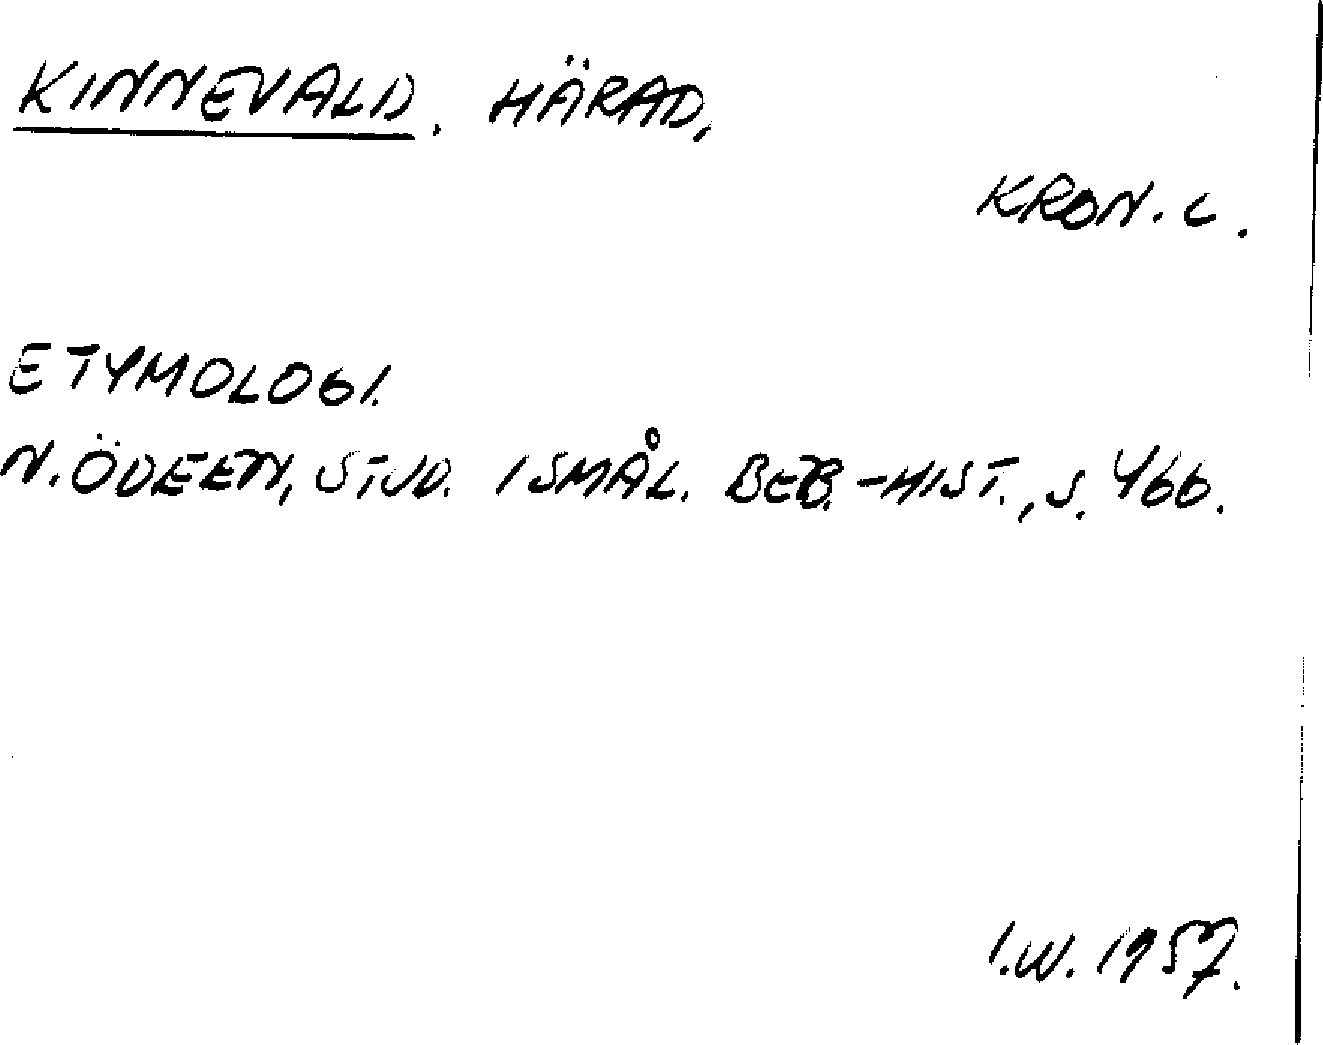 KINNEVALD. HÄRAD,
KRON. L.
ETYMOLOGI.
N. ÖDEEN, STUD. I SMÅL. BEB.-HIST., S. 466.
I.W. 1957.